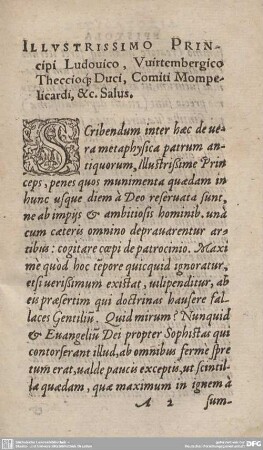 ILLVSTRISSIMO PRIN-
cipi Ludouico, Vuirtembergico
Theccioq; Duci, Comiti Mompe-
licardi, &c. Salus.
SCribendum inter hæc de ve-
ra metaphysica patrum an-
tiquorum, Illustrißime Prin
ceps, penes quos munimenta quædam in
hunc usque diem à Deo reseruata sunt,
ne ab impijs & ambitiosis hominib. unà
cum cæteris omnino deprauarentur ar-
tibus: cogitare cœpi de patrocinio. Maxi
mè quod hoc tẽpore quicquid ignoratur,
etsi uerißimum existat, uilipenditur, ab
eis præsertim qui doctrinas hausere fal
laces Gentiliũ. Quid mirum? Nunquid
& Euangeliũ Dei propter Sophistas qui
contorserant illud, ab omnibus ferme spre
tum erat, ualde paucis exceptis, ut scintil-
la quædam, quæ maximum in ignem à
A 2 sum-